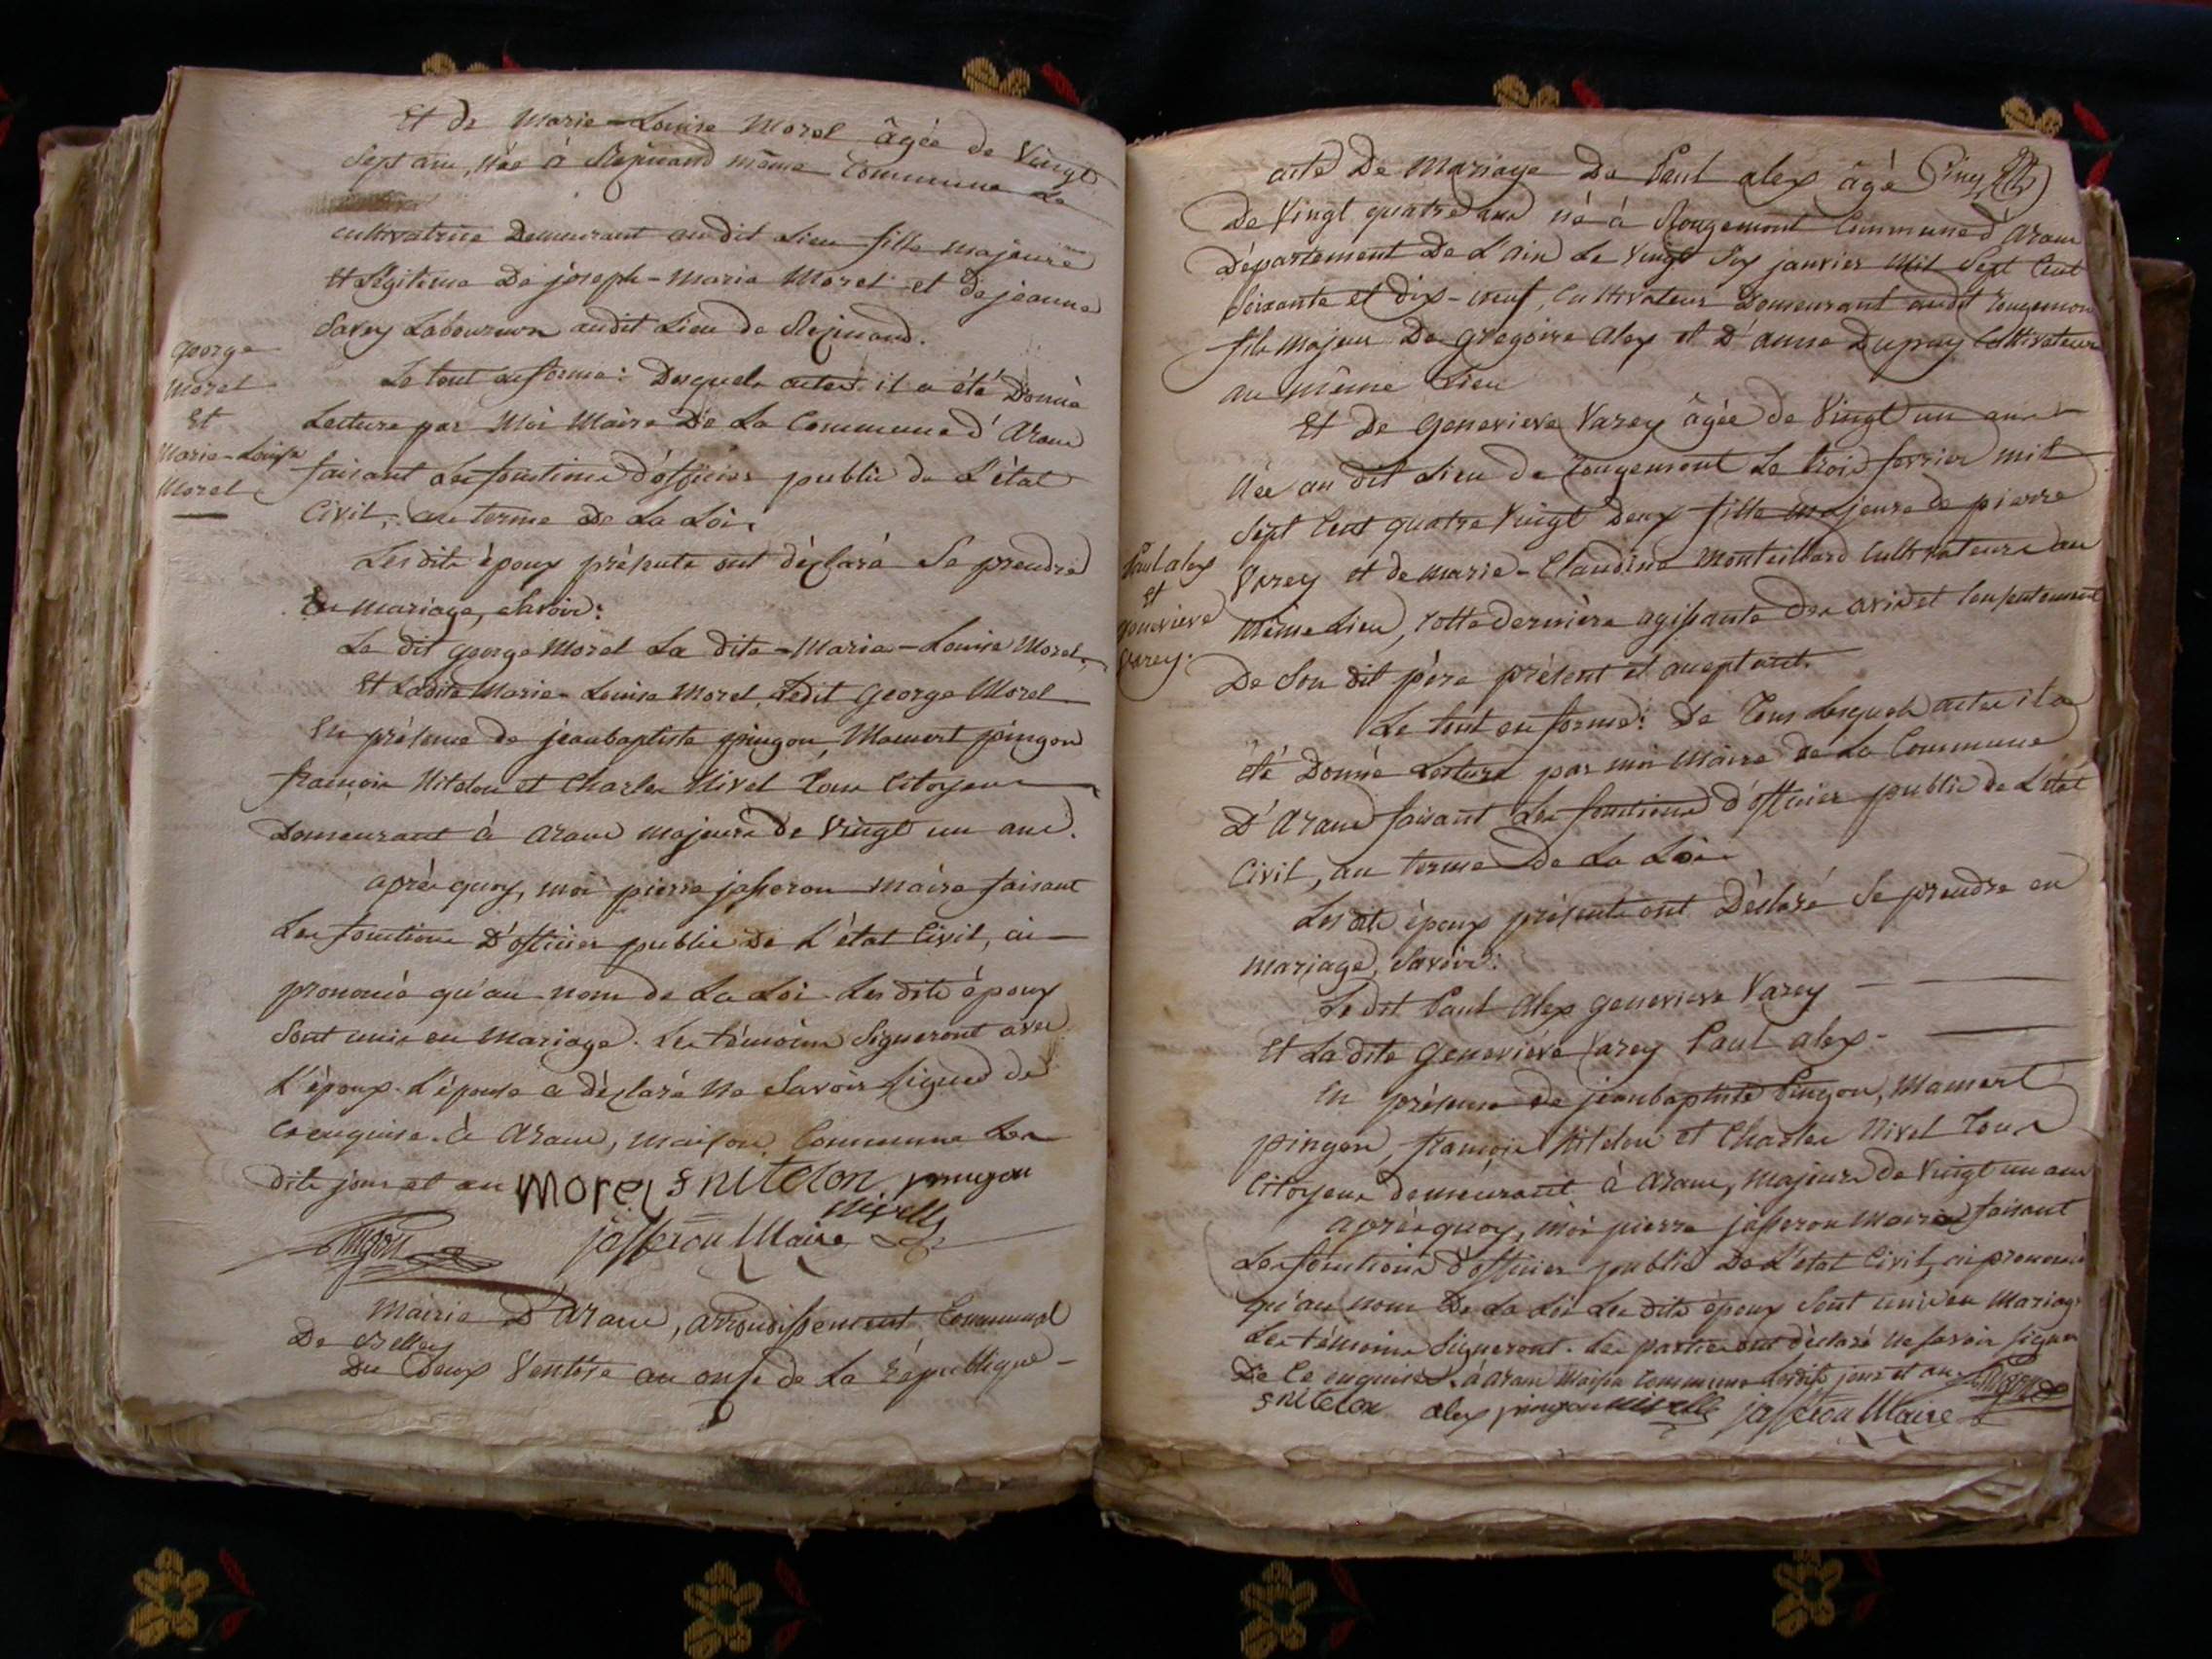 Et de Marie-Louise Morel âgée de Vingt
Sept ans, Née à Rejinand même Commune Le
cultivatrice Demeurant audit Lieu fille majeure
Et Légitime De joseph-Marie Morel et de jeanne
Savey Laboureurs audit Lieu de Rejinand.
george
Morel
Et
Marie-Louise
Morel
Le tout en forme: Desquels actes il a été Donné
Lecture par Moi Maire De La Commune d'Aranc
faisant Les fonctions d'officier public de L'état
Civil, au terme De La Loi.
Lesdits époux présents ont déclaré Se prendre
En mariage, Savoir:
Le dit george Morel La dite Marie-Louise Morel.
Et Ladite Marie-Louise Morel, Ledit george Morel
En présence de jeanbaptiste pingon, Mamert pingon
françois Nitelon et Charles Nivel Tous Citoyens
Demeurant à Aranc majeurs de Vingt un ans.
après quoy, moi pierre jasseron maire faisant
Les fonctions D'officier public De L'état Civil, ai
prononcé qu'au nom de La Loi Les dits époux
Sont unis en Mariage. Les témoins Signeront avec
L'époux. L'épouse a déclaré Ne Savoir Signer de
Ce enquise. à Aranc, maison Commune Les
dits jour et an Morel s nitelon pingon
nivelle
Pingon jasseron Maire
Mairie D'Aranc, arrondissement Communal
De Belley
Du Deux Ventose an onse de La République
acte De Mariage De Paul alex âgé
De Vingt quatre ans né à Rougemont Commune d'Aranc
Département De L'ain Le Vingt Six janvier Mil Sept Cent
Soixante et dix-neuf, Cultivateur Demeurant audit rougemont
fils majeur De gregoire alex et D'anne Dupuy Cultivateurs
au même Lieu
Et De genevieve Varey âgée de Vingt un ans
Née au dit Lieu de rougemont Le trois fevrier mil
Sept Cent quatre Vingt Deux fille majeure de pierre
Paul alex
Et
genevieve
Varey.
Varey et de marie-Claudine Monteillard Cultivateurs au
même Lieu, cette dernière agissante des avis et Consentement
De Son dit père présent et acceptant.
Le tout en forme: De Tous Lesquels actes il a
été Donné Lecture par moi Maire de La Commune
D'Aranc faisant Les fonctions d'officier public de L'état
Civil, au terme De La Loi
Lesdits époux présents ont Déclaré Se prendre en
mariage, Savoir:
Le dit Paul Alex genevieve Varey
Et La dite Genevieve Varey Paul alex
En présence de jeanbaptiste Pingon, Mamert
pingon, françois Nitelon et Charles Nivel Tous
Citoyens demeurant à Aranc, majeurs de Vingt un ans
après quoy, moi pierre jasseron Maire faisant
Les fonctions d'officier public De L'état Civil, ai prononcé
qu'au nom De La Loi Les dits époux Sont unis en Mariage
Les témoins Signeront. Les parties ont déclaré Ne Savoir Signer
De Ce enquises. à Aranc Maison Commune Lesdits jour et an Pingon
s nitelon alex pingon nivelle jasseron Maire